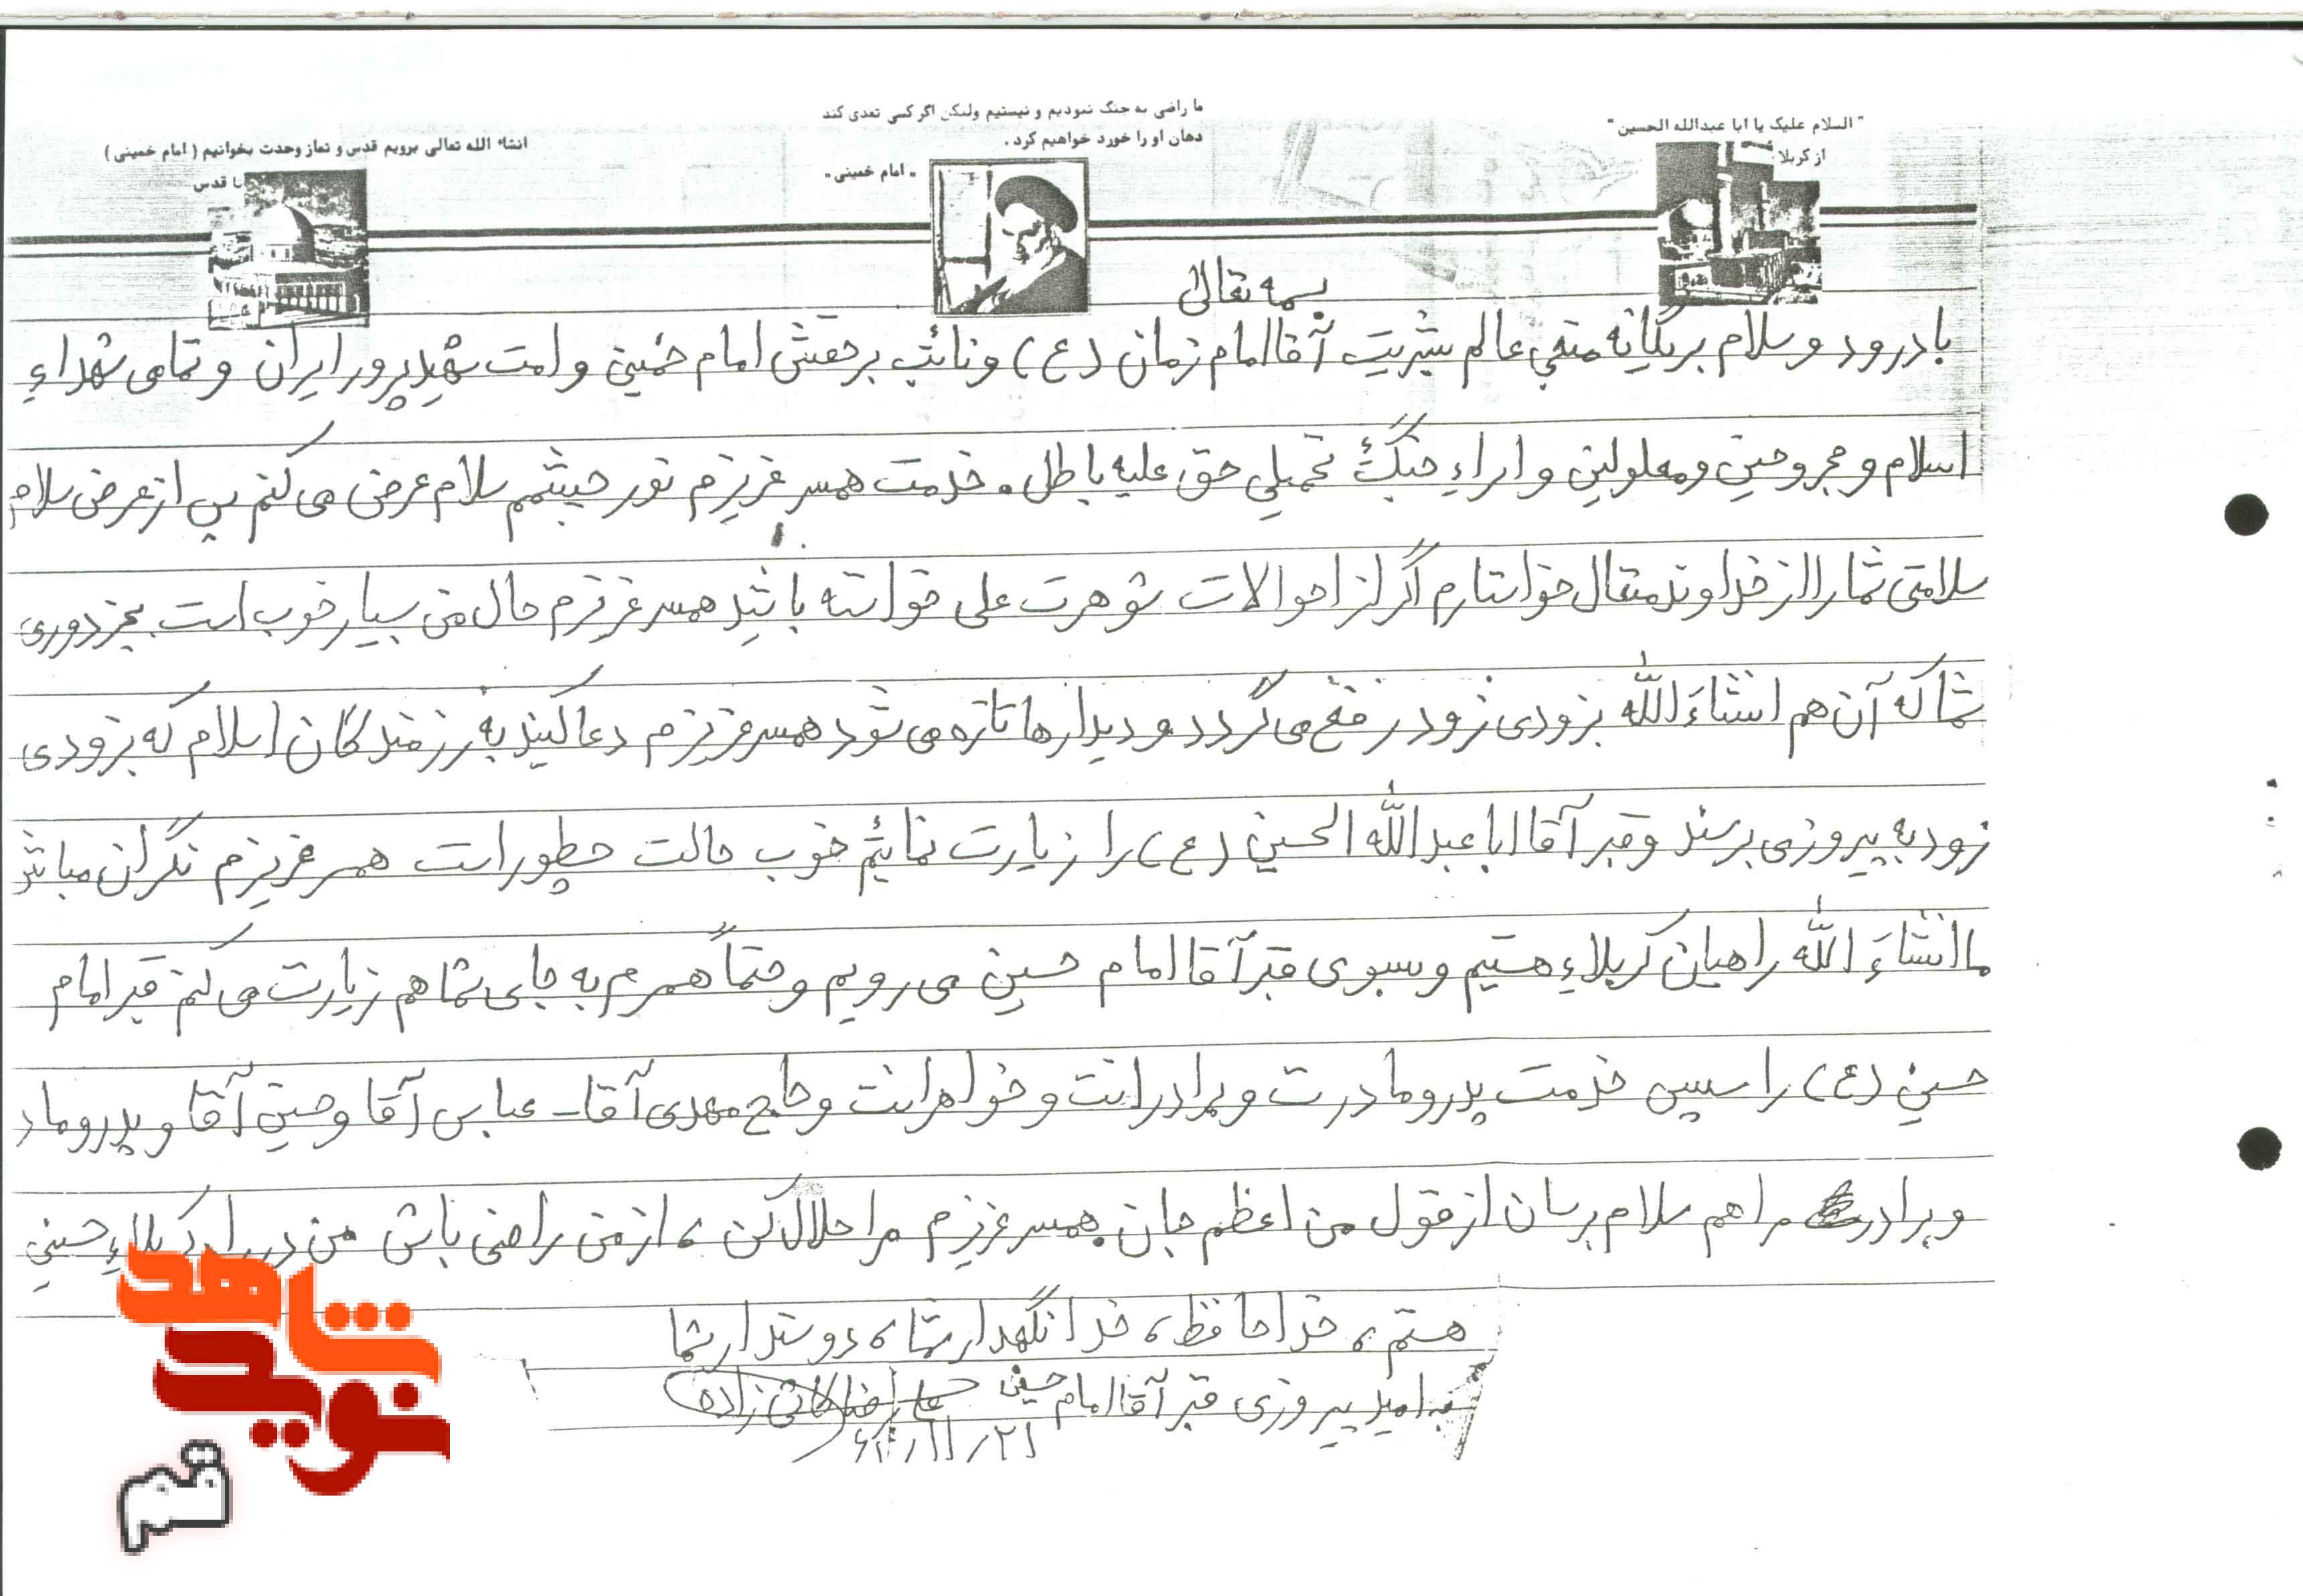 "السلام علیک یا ابا عبدالله الحسین"
از کربلا
ما راضی به جنگ نبودیم و نیستیم ولیکن اگر کسی تعدی کند
دهان او را خورد خواهیم کرد .
" امام خمینی "
انشاء الله تعالی برویم قدس و نماز وحدت بخوانیم ( امام خمینی )
تا قدس
بسمه تعالی
با درود و سلام بر یگانه منجی عالم بشریت آقا امام زمان (ع) و نائب برحقش امام خمینی و امت شهید پرور ایران و تمامی شهداء
اسلام و مجروحین و معلولین و اسراء جنگ تحمیلی حق علیه باطل . خدمت همسر عزیزم نور چشمم سلام عرض می کنم پس از عرض سلام
سلامتی شما را از خداوند متعال خواستارم اگر از احوالات شوهرت علی خواسته باشید همسر عزیزم حال من بسیار خوب است بجز دوری
شما که آن هم انشاءَ اللّه بزودی زود رفع می گردد و دیدارها تازه می شود همسر عزیزم دعا کنید به رزمندگان اسلام که بزودی
زود به پیروزی برسند و قبر آقا ابا عبداللّه الحسین (ع) را زیارت نمائیم خوب حالت چطور است همسر عزیزم نگران مباشد
ما انشاءَ اللّه راهیان کربلاءِ هستیم و بسوی قبر آقا امام حسین می رویم و حتماً همسرم به جای شما هم زیارت می کنم قبر امام
حسین (ع) را سپس خدمت پدر و مادرت و برادرانت و خواهرانت و حاج مهدی آقا - عباس آقا و حسین آقا و پدر و مادر
و برادر مرا هم سلام برسان از قول من اعظم جان همسر عزیزم مرا حلال کن ، از من راضی باش من در راه کربلاءِ حسینی
هستم ، خدا حافظ ، خدا نگهدار شما ، دوستدار شما
به امید پیروزی قبر آقا امام حسین علیرضا کاشی زاده
۲۱ / ۱۱ /
شاهد
نوید
قم